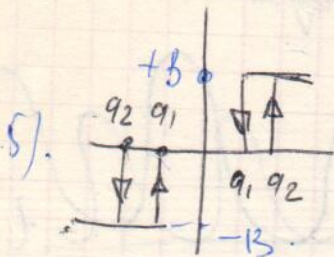 +B
q2 q1
5).
q1 q2
-B.